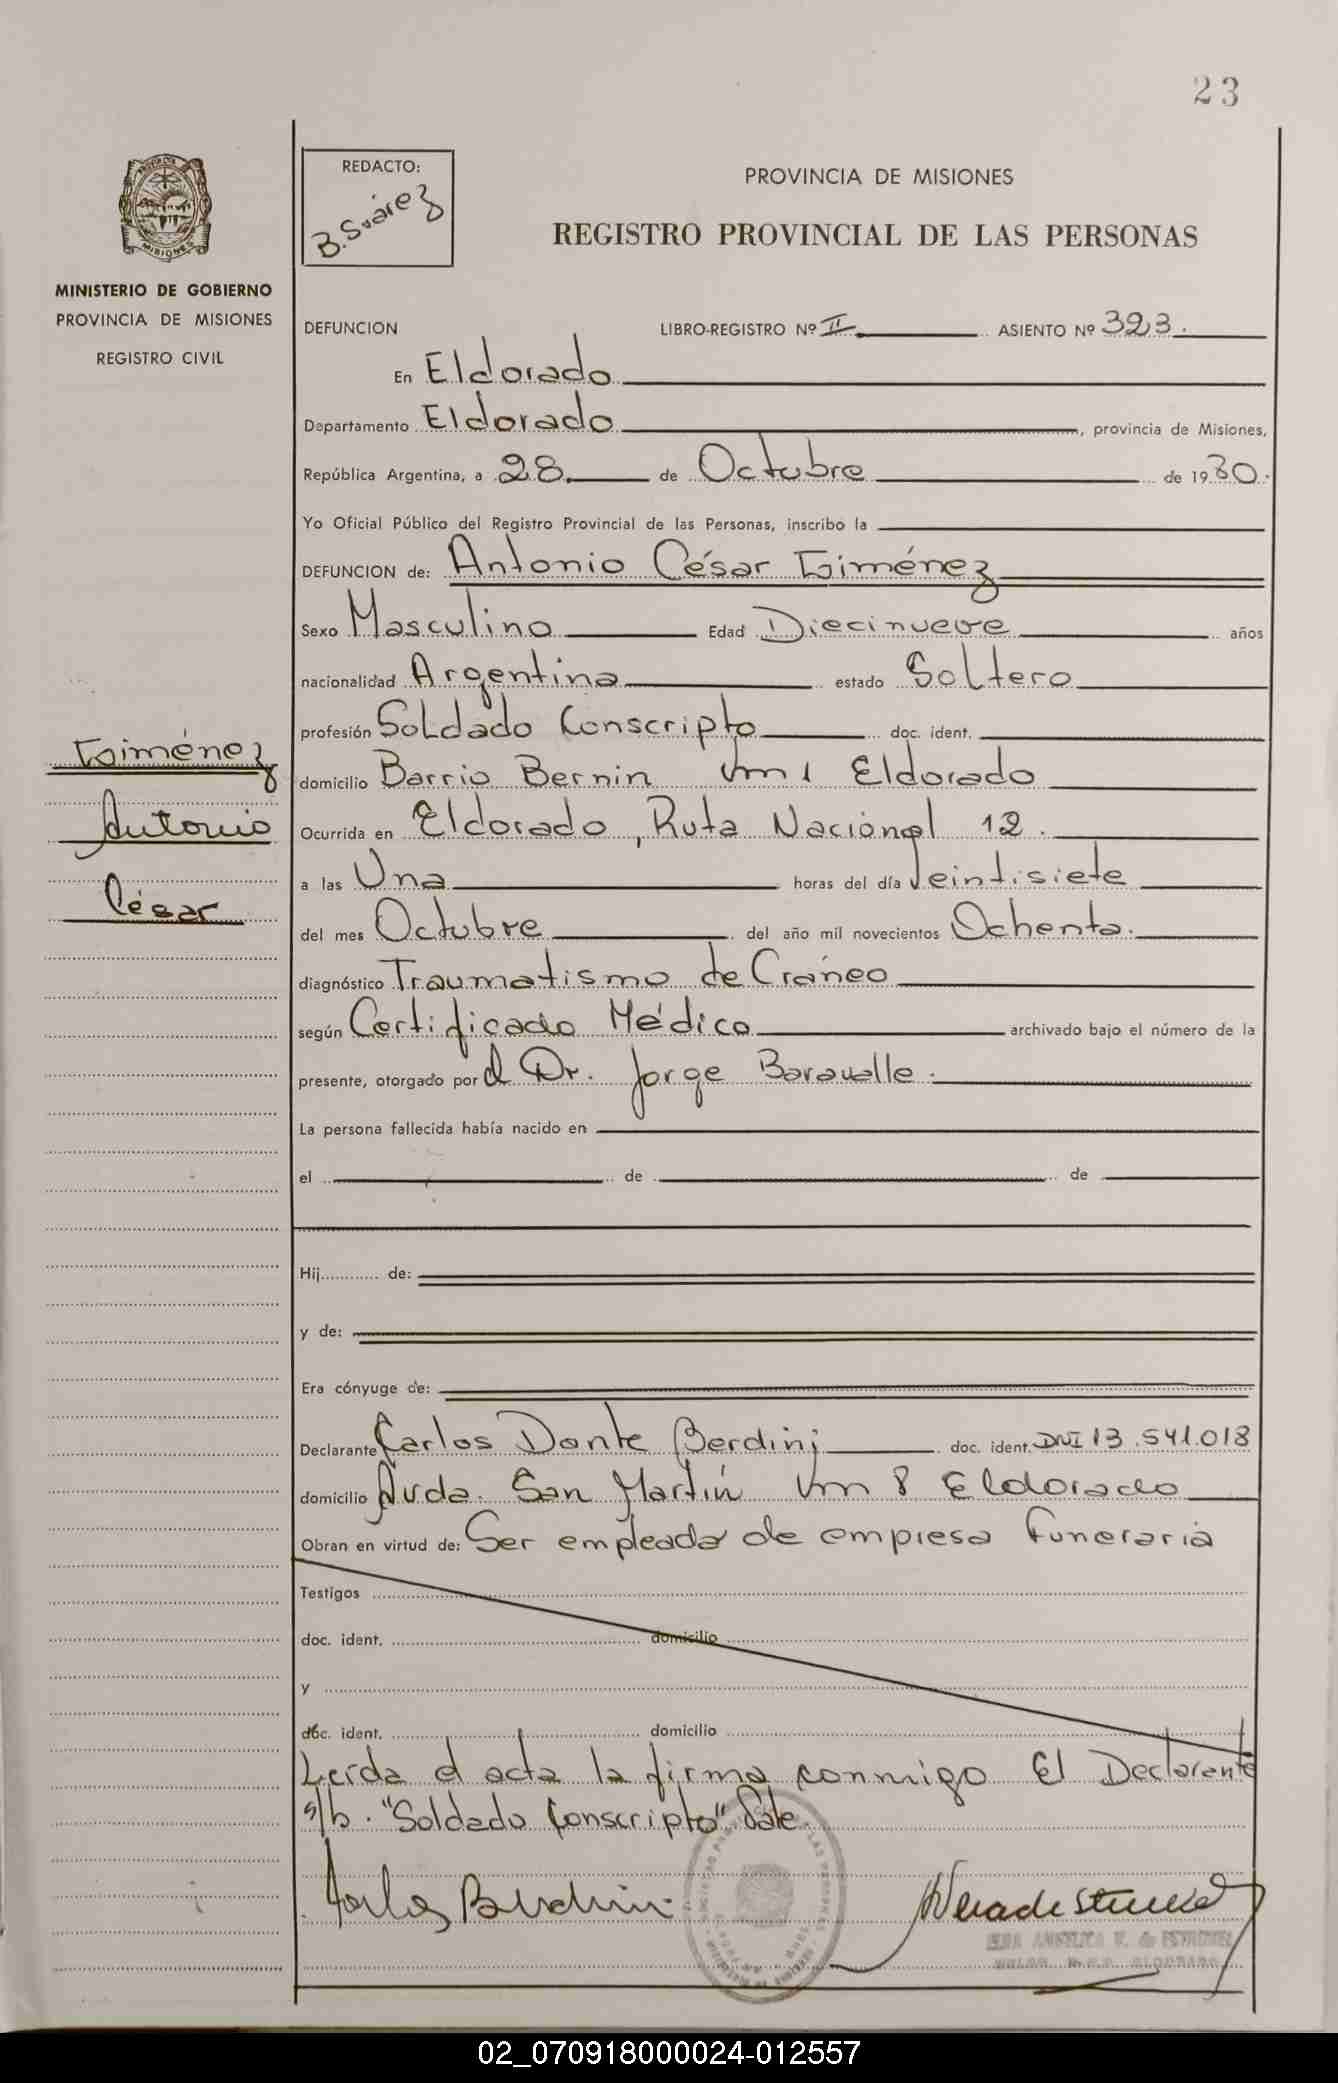 23
REDACTO:
B. Suárez
PROVINCIA DE MISIONES
REGISTRO PROVINCIAL DE LAS PERSONAS
MINISTERIO DE GOBIERNO
PROVINCIA DE MISIONES
REGISTRO CIVIL
DEFUNCION LIBRO-REGISTRO Nº II ASIENTO Nº 323.
En Eldorado
Departamento Eldorado, provincia de Misiones,
República Argentina, a 28 de Octubre de 1980.
Yo Oficial Público del Registro Provincial de las Personas, inscribo la
DEFUNCION de: Antonio César Giménez
Sexo Masculino Edad Diecinueve años
nacionalidad Argentina estado Soltero
profesión Soldado Conscripto doc. ident.
Giménez
Antonio
César
domicilio Barrio Bernin Km 1 Eldorado
Ocurrida en Eldorado, Ruta Nacional 12.
a las Una horas del día Veintisiete
del mes Octubre del año mil novecientos Ochenta.
diagnóstico Traumatismo de Cráneo
según Certificado Médico archivado bajo el número de la
presente, otorgado por el Dr. Jorge Baravalle.
La persona fallecida había nacido en
el de de
Hij de:
y de:
Era cónyuge de:
Declarante Carlos Dante Berdini doc. ident. DNI 13.541.018
domicilio Avda. San Martín Km 8 Eldorado
Obran en virtud de: Ser empleado de empresa funeraria
Testigos
doc. ident. domicilio
y
doc. ident. domicilio
Leída el acta la firma conmigo El Declarante
s/b. "Soldado Conscripto" Vale.
Carlos Berdini
02_070918000024-012557